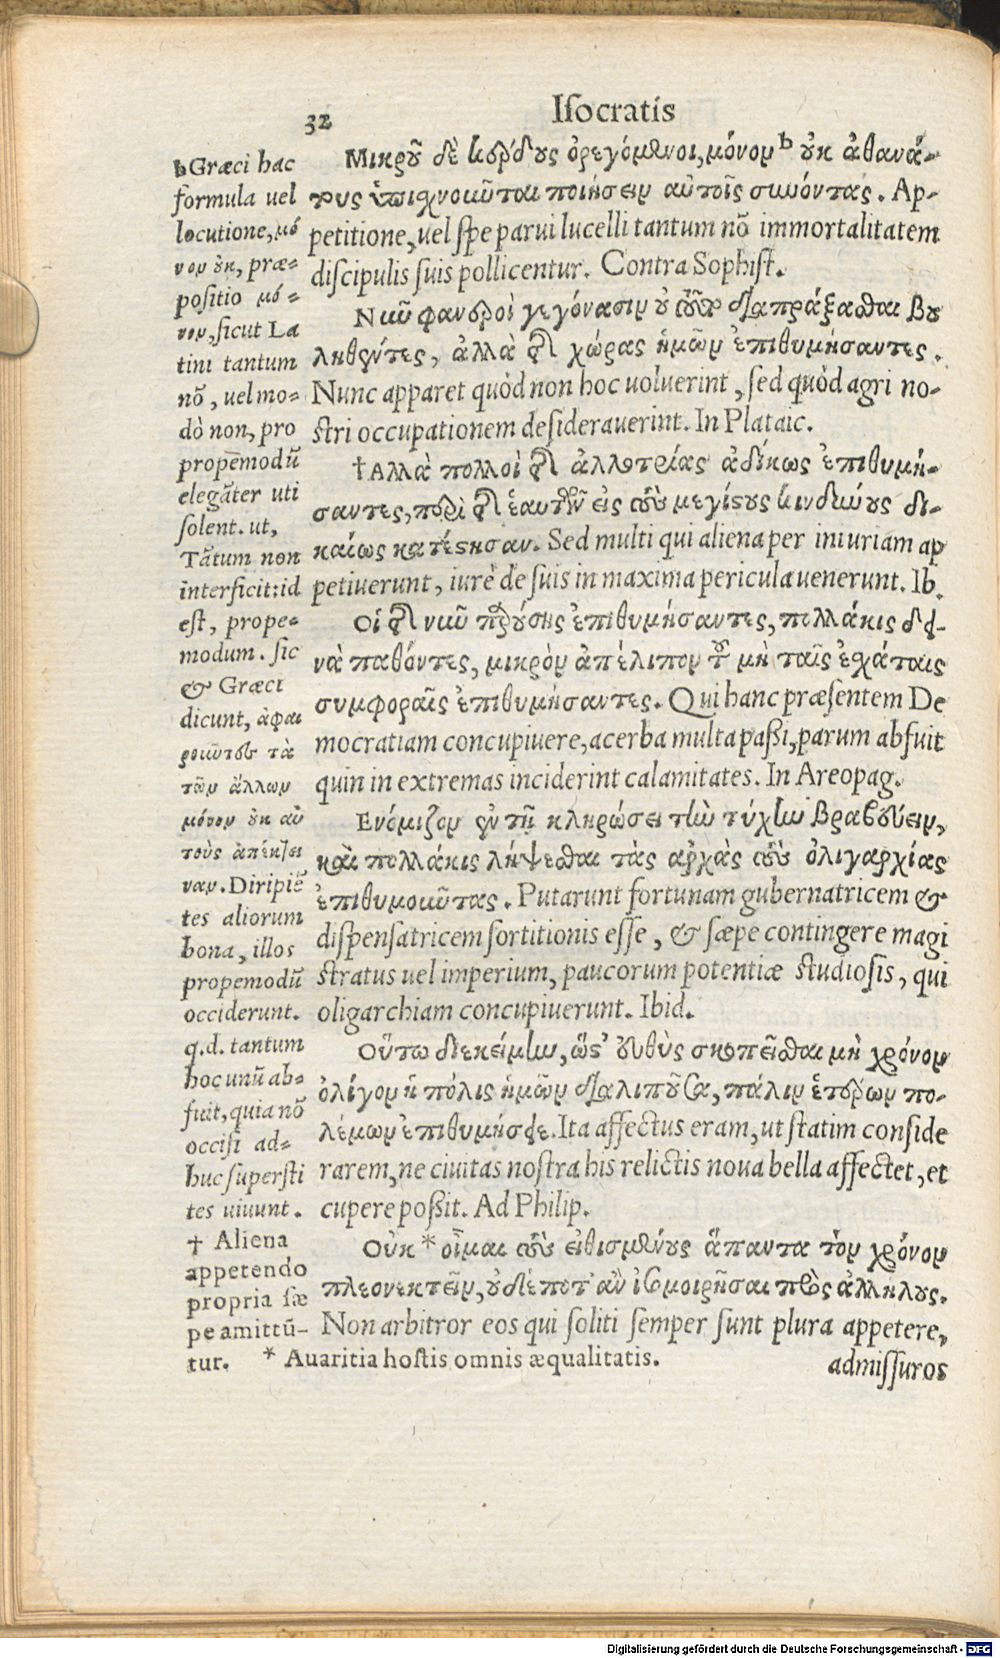 32 Iſocratis
Μικροῦ δὲ κέρδους ὀρεγόμενοι, μόνον b οὐκ ἀθανά-
τους ὑπισχνοῦνται ποιήσειν αὐτοῖς συνόντας. Ap-
petitione, uel ſpe parui lucelli tantum nõ immortalitatem
diſcipulis ſuis pollicentur. Contra Sophiſt.
Νῦν φανεροὶ γεγόνασιν οὐ τοῦτο διαπράξασθαι βου
ληθέντες, ἀλλὰ τῆς χώρας ἡμῶν ἐπιθυμήσαντες.
Nunc apparet quòd non hoc uoluerint, ſed quòd agri no-
ſtri occupationem deſiderauerint. In Plataic.
†Αλλὰ πολλοὶ τῆς ἀλλοτρίας ἀδίκως ἐπιθυμή-
σαντες, περὶ τῆς ἑαυτῶν εἰς τοὺς μεγίστους κινδύνους δι-
καίως κατέστησαν. Sed multi qui aliena per iniuriam ap
petiuerunt, iure de ſuis in maxima pericula uenerunt. Ib.
Οἱ τῆς νῦν παρούσης ἐπιθυμήσαντες, πολλάκις δει-
νὰ παθόντες, μικρὸν ἀπέλιπον τοῦ μὴ ταῖς ἐσχάταις
συμφοραῖς ἐπιθυμήσαντες. Qui hanc præſentem De
mocratiam concupiuere, acerba multa paßi, parum abfuit
quin in extremas inciderint calamitates. In Areopag.
Ενόμιζον ἐν τῇ κληρώσει τὴν τύχην βραβεύειν,
καὶ πολλάκις λήψεσθαι τὰς ἀρχὰς τοὺς ὀλιγαρχίας
ἐπιθυμοῦντας. Putarunt fortunam gubernatricem &
diſpenſatricem ſortitionis eſſe, & ſæpe contingere magi
ſtratus uel imperium, paucorum potentiæ ſtudioſis, qui
oligarchiam concupiuerunt. Ibid.
Οὕτω διεκείμην, ὥστ' εὐθὺς σκοπεῖσθαι μὴ χρόνον
ὀλίγον ἡ πόλις ἡμῶν διαλιποῦσα, πάλιν ἑτέρων πο-
λέμων ἐπιθυμήσειε. Ita affectus eram, ut ſtatim conſide
rarem, ne ciuitas noſtra his relictis noua bella affectet, et
cupere poßit. Ad Philip.
Οὐκ * οἶμαι τοὺς εἰθισμένους ἅπαντα τὸν χρόνον
πλεονεκτεῖν, οὐδέποτ' ἂν ἰσομοιρῆσαι πρὸς ἀλλήλους.
Non arbitror eos qui ſoliti ſemper ſunt plura appetere,
admiſſuros
b Græci hac
formula uel
locutione, μό
νον οὐκ, præ-
poſitio μό-
νον, ſicut La
tini tantum
nõ, uel mo-
dò non, pro
propemodũ
elegãter uti
ſolent. ut,
Tãtum non
interficit: id
eſt, prope-
modum. ſic
& Græci
dicunt, ἀφαι
ροῦντες τὰ
τῶν ἄλλων
μόνον οὐκ αὐ
τοὺς ἀπέκτει
ναν. Diripiẽ
tes aliorum
bona, illos
propemodũ
occiderunt.
q.d. tantum
hoc unũ ab-
fuit, quia nõ
occiſi ad-
huc ſuperſti
tes uiuunt.
† Aliena
appetendo
propria ſæ
pe amittũ-
tur. * Auaritia hoſtis omnis æqualitatis.
Digitalisierung gefördert durch die Deutsche Forschungsgemeinschaft - DFG